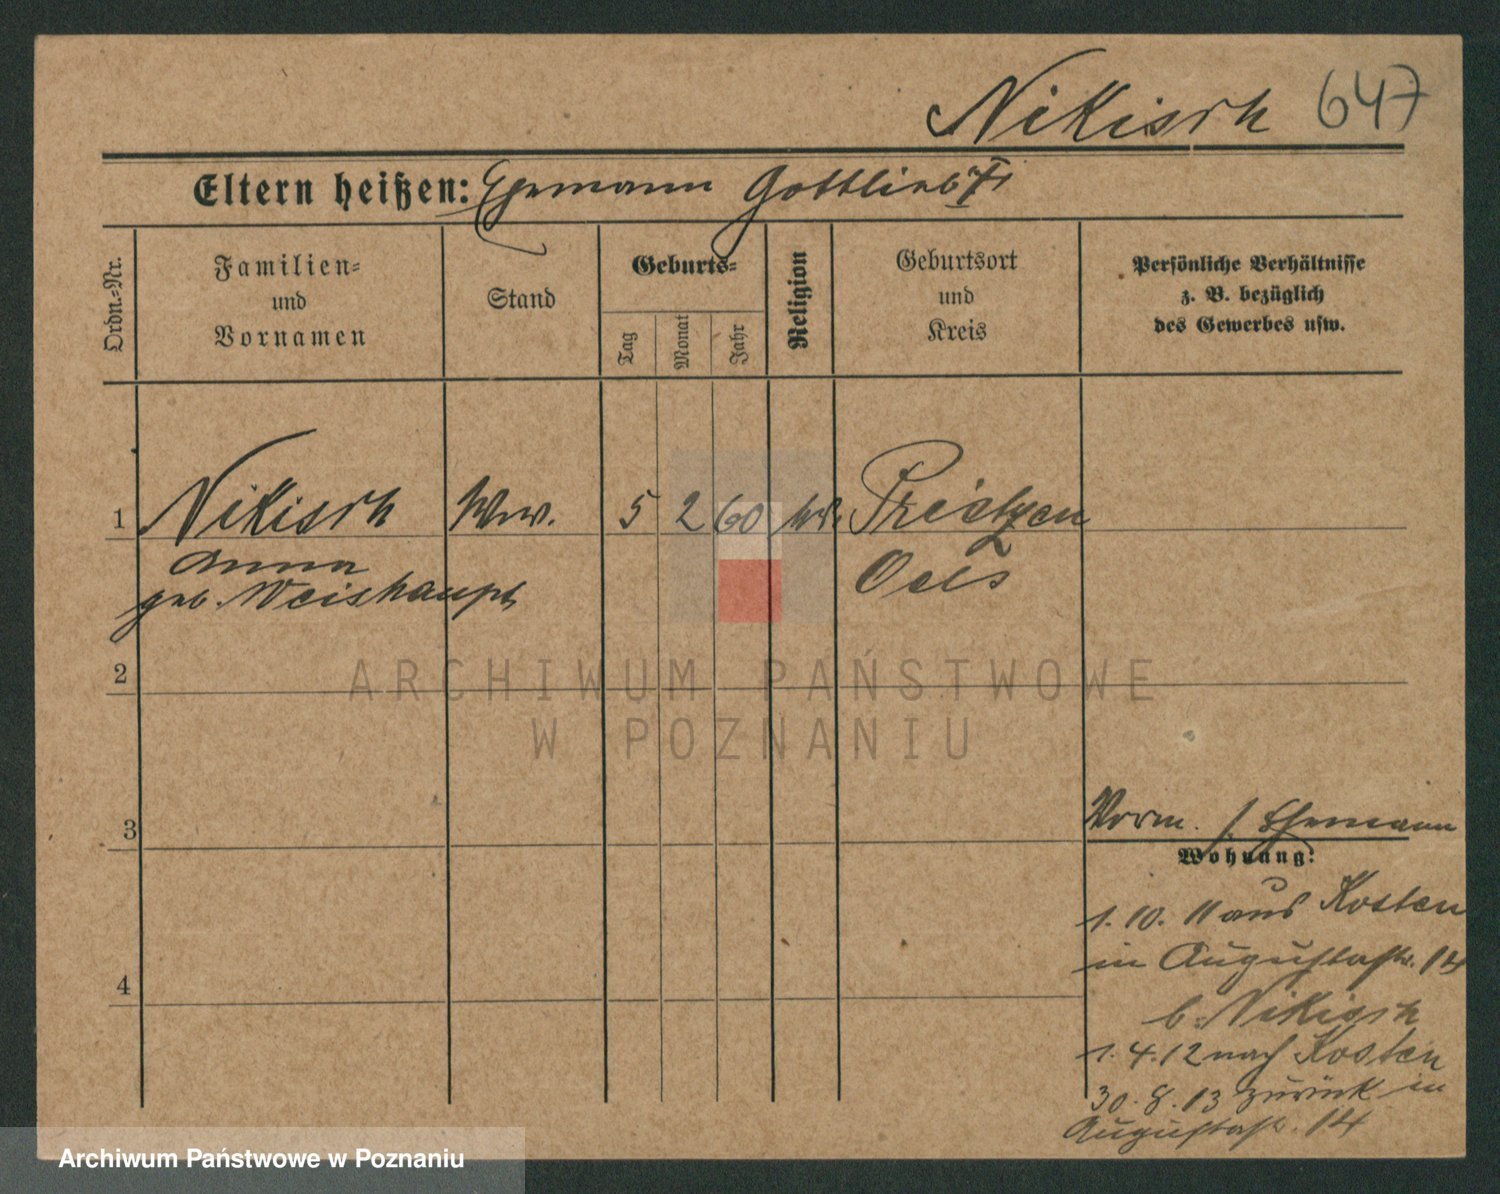 Nikisch 647
Eltern heißen: Ehemann Gottlieb †
Ordn.-Nr.
Familien-
und
Vornamen
Stand
Geburts-
Tag
Monat
Jahr
Religion
Geburtsort
und
Kreis
Persönliche Verhältnisse
z. B. bezüglich
des Gewerbes usw.
1 Nikisch Wwe. 5 2 60 Prietzen
Anna Oels
geb. Weishaupt
2
3
4
Vorm. s. Ehemann
Wohnung:
1. 10. 11 aus Kosten
in Augustastr. 14
b. Nikisch
1. 4. 12 nach Kosten
30. 8. 13 zurück in
Augustastr. 14
ARCHIWUM PAŃSTWOWE
W POZNANIU
Archiwum Państwowe w Poznaniu